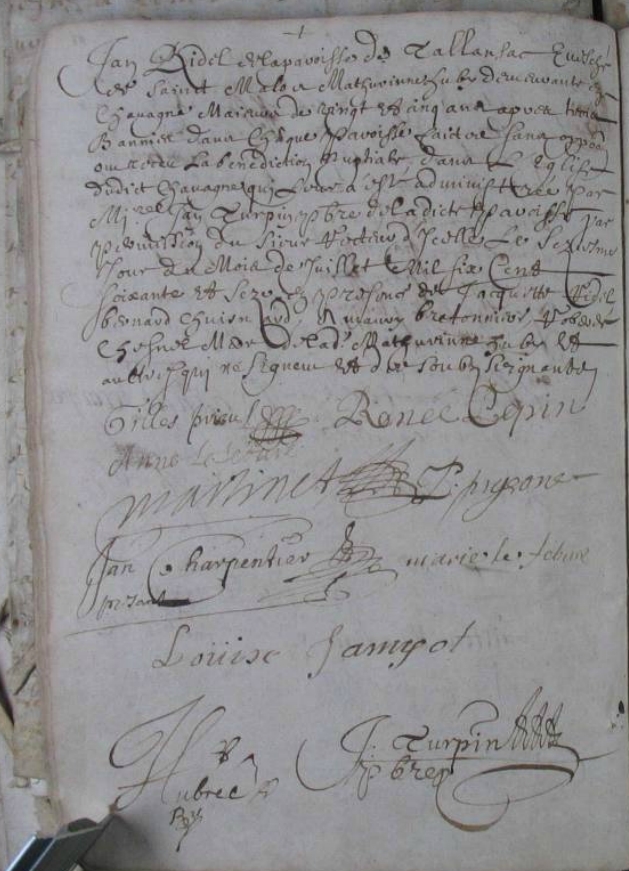 Jan Ridel de la paroisse de Tallansac Evesché
de Sainct Malo & Mathurinne hubr demeurante
Chavagne Maieurs de vingt et cinq ans apres
Bannies dans Chaque paroisse faictre sans
ont receu La benediction Nuptialle dans L'Eglise
dudict Chavagne qui Leur a esté administrée par
Mi.re Jan Turpin pbre de ladicte paroisse par
permission du Sieur Recteur d'Icelle Le Seziesme
Jour du Mois de Juillet Mil six Cent
soixante et seze en presence de Jacquette Ridel
bernard Amaury bretonniere Robert
Chesnel Mere de lad. Mathurinne hubr et
aultres qui ne signent et des soubz signants
Gilles prieul Renee Cepin
Anne Lefebure
Martinet P. pigeone
Jan Charpentier marie le febure
prsant
Louise Jamyot
Hubree J. Turpin
pbre